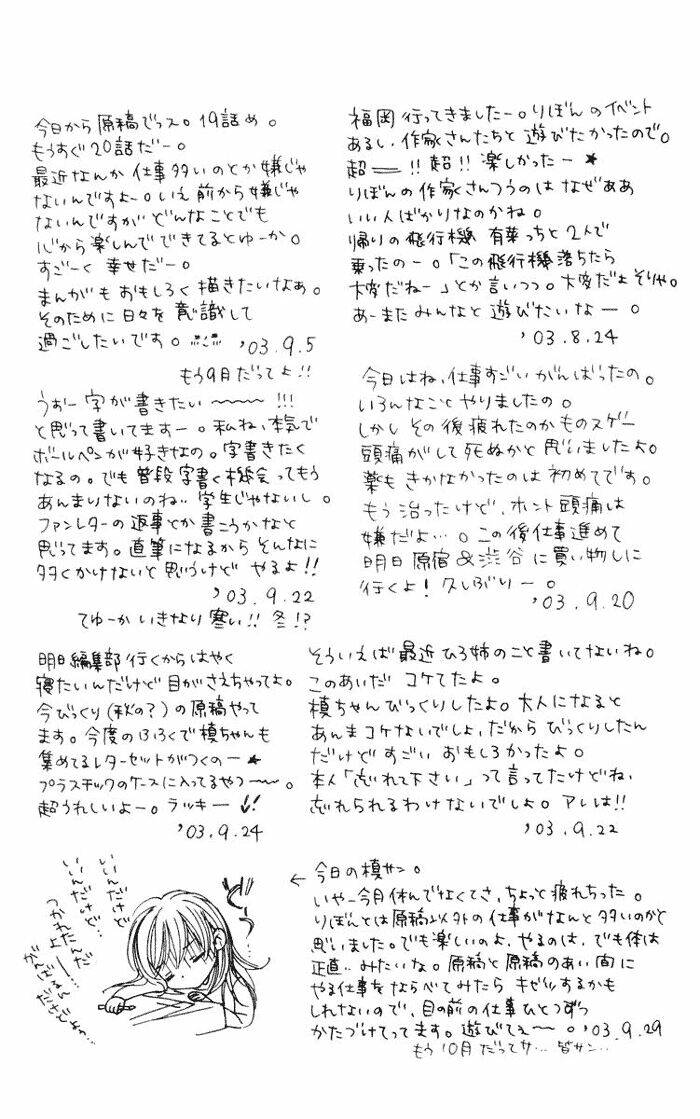 福岡行ってきましたー。りぼんのイベント
あるし、作家さんたちと遊びたかったので。
超━━!! 超!! 楽しかったー★
りぼんの作家さんつうのは なぜああ
いい人ばかりなのかね。
帰りの飛行機 有葉っちと2人で
乗ったのー。「この飛行機落ちたら
大変だねー」とか言いつつ。大変だよそりゃ。
あーまたみんなと遊びたいなー。
'03.8.24
今日から原稿でっス。19話め。
もうすぐ20話だー。
最近なんか仕事多いのとか嫌じゃ
ないんですよー。いえ前から嫌じゃ
ないんですが どんなことでも
心から楽しんでできてるとゆーか。
すごーく幸せだー。
まんがもおもしろく描きたいなあ。
そのために日々を意識して
過ごしたいです。
'03.9.5
もう9月だってよ!!
今日はね、仕事すごいがんばったの。
いろんなことやりましたの。
しかしその後疲れたのかものスゲー
頭痛がして死ぬかと思いましたよ。
薬もきかなかったのは初めてです。
もう治ったけど、ホント頭痛は
嫌だよ…。この後仕事進めて
明日原宿&渋谷に買い物しに
行くよ! 久しぶりー。
'03.9.20
うおー字が書きたい〜〜〜!!!
と思って書いてますー。私ね、本気で
ボールペンが好きなの。字書きたく
なるの。でも普段字書く機会ってもう
あんまりないのね… 学生じゃないし。
ファンレターの返事とか書こうかなと
思ってます。直筆になるからそんなに
多くかけないと思うけど やるよ!!
'03.9.22
てゆーか いきなり寒い!! 冬!?
そういえば最近ひろ姉のこと書いてないね。
このあいだ コケてたよ。
槙ちゃんびっくりしたよ。大人になると
あんまコケないでしょ、だからびっくりしたん
だけどすごいおもしろかったよ。
本人「忘れて下さい」って言ってたけどね、
忘れられるわけないでしょ。アレは!!
'03.9.22
明日編集部行くからはやく
寝たいんだけど目がさえちゃってよ。
今びっくり(秋の?)の原稿やって
ます。今度のふろくで槙ちゃんも
集めてるレターセットがつくのー★
プラスチックのケースに入ってるやつ〜〜。
超うれしいよー。ラッキー
'03.9.24
← 今日の槙サン。
いやー今月休んでなくてさ、ちょっと疲れちった。
りぼんとは原稿以外の仕事がなんと多いのかと
思いました。でも楽しいのよ、やるのは、でも体は
正直…みたいな。原稿と原稿のあい間に
やる仕事をならべてみたらキゼツするかも
しれないので、目の前の仕事ひとつずつ
かたづけてってます。遊びてぇ〜。'03.9.29
もう10月だってサ… 皆サン…
いいんだけど
いいんだけど…
つかれたんだ
よー…